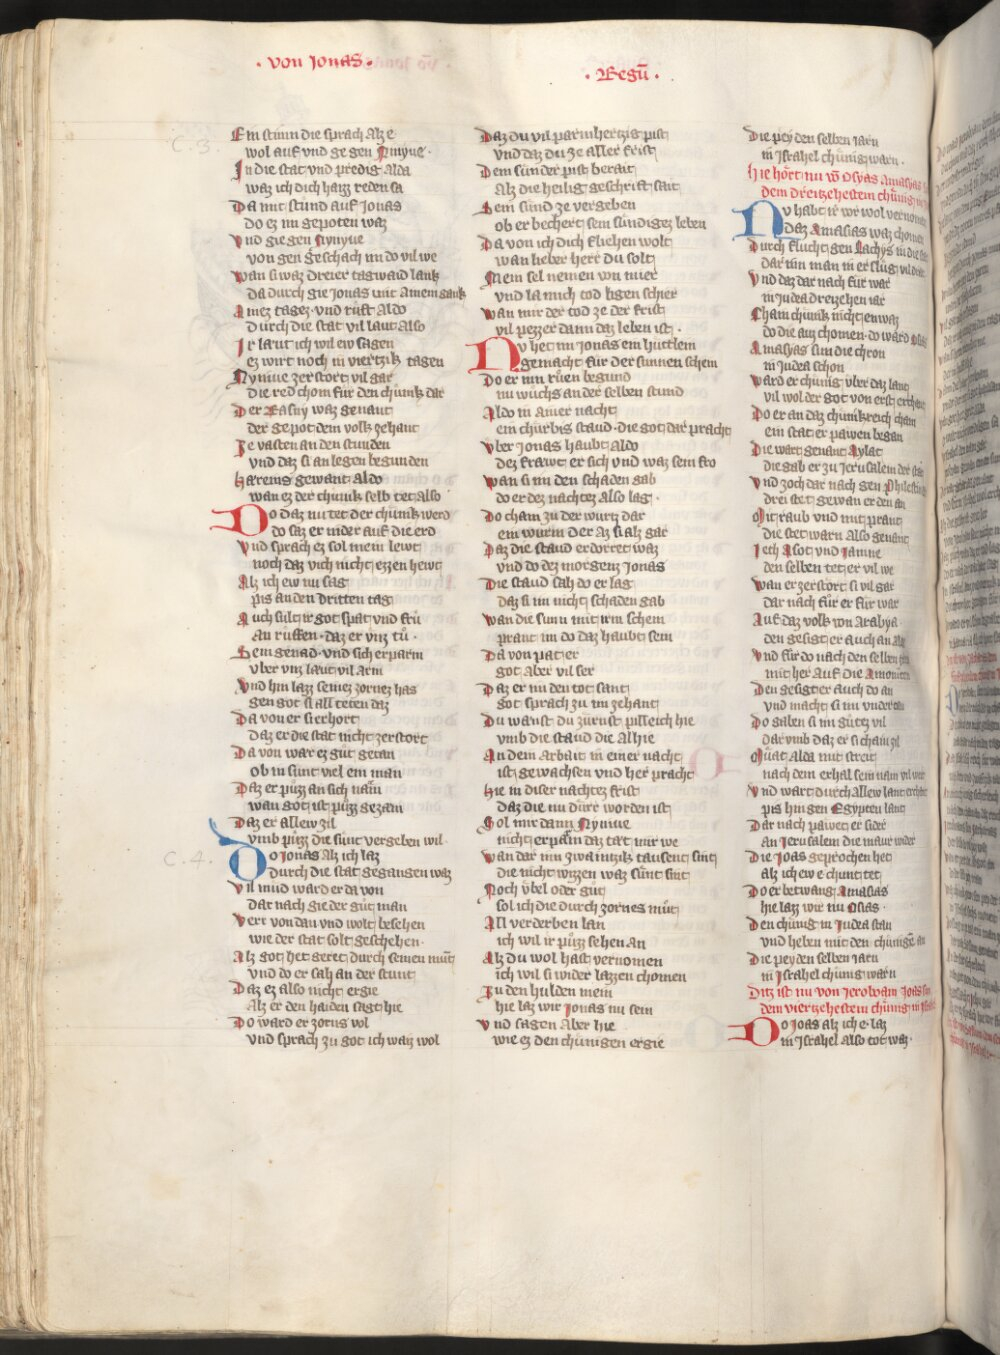 · von Jonas ·
· Regū ·
C. 3.
Ein stimm die sprach alz e
wol auf vnd ge gen Ninyue ·
In die stat vnd predig alda
waz ich dich haizz reden sa
Da mit stund auf Jonas
do ez im gepoten waz
Vnd gie gen Nynyue
von gen geschach im do vil we
wan si waz dreier tagwaid lank
da durch gie Jonas mit ainem gank
Ainez tagez · vnd růft aldo
durch die stat vil laut also
Ir laut ich wil ew sagen
ez wirt noch in viertzik tagen
Nyniue zerstort vil gar
die red chom für den chünk dar
Der Rasny waz genant
der gepot dem volk zehant
Ze vasten an den stunden
vnd daz si an legen begunden
Hareins gewant aldo
wan ez der chünk selb tet also
Do daz nu tet der chünk werd
do saz er nider auf die erd
Vnd sprach ez sol mein lewt
noch daz vich nicht ezzen hewt
Alz ich ew nu sag
pis an den dritten tag
Auch sült ir got spat vnd frü
an rüffen · daz er vnz tü ·
Sein genad · vnd sich erparm
vber vnz laut vil arm
Vnd hin lazz seinez zornez has
gen got si all teten daz
Da von er si erhort
daz er die stat nicht zerstort
Da von war ez güt getan
ob in sunt viel ein man
Daz er püzz an sich näm
wan got ist püzz gezam
Daz er allew zil
vmb püzz die sünt vergeben wil
C. 4.
Do Jonas alz ich laz
durch die stat gegangen waz
Vil müd ward er da von
dar nach gie der güt man
Verr von dan vnd wolt besehen
wie der stat solt geschehen ·
Alz got het geret durch seinen müt
vnd do er sah an der stunt
Daz ez also nicht ergie
Alz er den haiden sagt hie
Do ward er zorns vol
vnd sprach zu got ich waiz wol
Daz du vil parmhertzig pist
vnd daz du ze aller frist
Dem sünder pist berait
Alz die heilig geschrift sait
Sein sünd ze vergeben
ob er bechert sein sündigez leben
Da von ich dich fliehen wolt
wan lieber herr du solt
Mein sel nemen von mier
vnd la mich tod ligen schier
wan mir der tod ze der frist
vil pezzer dann daz leben ist ·
Nv het im Jonas ein hüttlem
gemacht für der sunnen schem
Do er inn rüen begund
nu wüchs an der selben stund
Aldo in ainer nacht
ein chürbis staud · die got dar pracht
Vber Jonas haubt aldo
dez frawt er sich vnd waz sein fro
wan si im den schaden gab
do er dez nachtez also lag ·
Do cham zu der wurtz dar
ein wurm der az si alz gar
Daz die staud erdorret waz
vnd do dez morgenz Jonas
Die staud sah do er lag
daz si im nicht schaden gab
wan die sunn mit irm schem
prant im do daz haubt sein
Da von pat er
got aber vil ser
Daz er im den tot sant
got sprach zu im zehant
Du wanst du zürnst pilleich hie
vmb die staud die alhie
An dein arbait in einer nacht
ist gewachsen vnd her pracht
Hie in diser nachtez frist
daz die nu dürr worden ist
Sol mir dann Nyniue
nicht erparm daz tät mir we
wan dar inn zwaintzik tausent sint
die nicht wizzen waz sünt sint
Noch übel oder güt
sol ich die durch zornes müt
All verderben lan
ich wil ir püzz sehen an
Alz du wol hast vernomen
ich wil si wider lazzen chomen
Zu den hulden mein
hie laz wir Jonas nu sein
Vnd sagen aber hie
wie ez den chünigen ergie
Die pey den selben iarn
in Israhel chünig warn ·
Hie hört nu vō Osyas Amasyas
dem dreitzehestem chünig in
Nv habt ir wr wol vernomen
daz Amasias waz chomen
Durch flucht gen Lachys in die stat
dar inn man in erslüg vil drat
Vnd daz dar nach für war
in Judea dreizehen iar
Cham chünk nicht enwaz
do die auz chomen · do ward Osias
Amasyas sun die chron
in Judea schon
Ward er chünig vber daz lant
vil wol der got von erst erchant
Do er an daz chünikreich cham
ein stat er pawen began
Die wart genant Aylat
die gab er zu Jerusalem der stat
Vnd zoch dar nach gen Philestin
drei stet gewan er den an
Mit raub vnd mit prant
die stet warn also genant
Jeth Asot vnd Jamne
den selben tet er vil we
wan er zerstort si vil gar
dar nach für er für war
Auf daz volk von Arabya
den gesigt er auch an alda
Vnd für do nach den selben
mit her auf die Amoniten
Den gesigt er auch do an
vnd macht si im vndertan
Do gaben si im gütz vil
dar vmb daz er si cham zil
Müat alda mit streit
nach dem erhal sein nam vil weit
Vnd wart durch allew lant erchant
pis hin gen Egypten lant
Dar nach pawet er sider
an Jerusalem die maur wider
Die Joas geprochen het
alz ich ew e chunt tet
Do er betwang Amasias
hie lazz wir nu Osias ·
Den chünig in Judea stan
vnd heben mit den chünigē an
Die pey den selben iarn
in Israhel chünig warn
Ditz ist nu von Jerobam Joas sun
dem viertzehestem chünig in
Do Joas alz ich e laz
in Israhel also tot waz ·